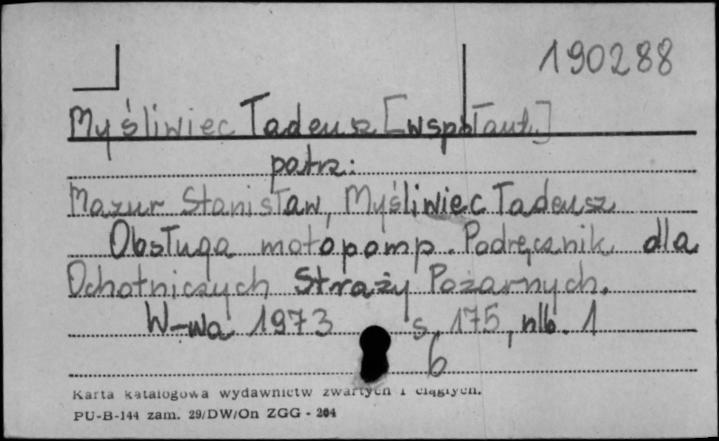 190288
Myśliwiec Tadeusz [współaut.]
patrz:
Mazur Stanisław, Myśliwiec Tadeusz
Obsługa motopomp. Podręcznik dla
Ochotniczych Straży Pożarnych.
W-wa 1973 s. 175, nlb. 1
6
Karta katalogowa wydawnictw zwartych i ciągłych.
PU-B-144 zam. 29/DW/On ZGG - 204